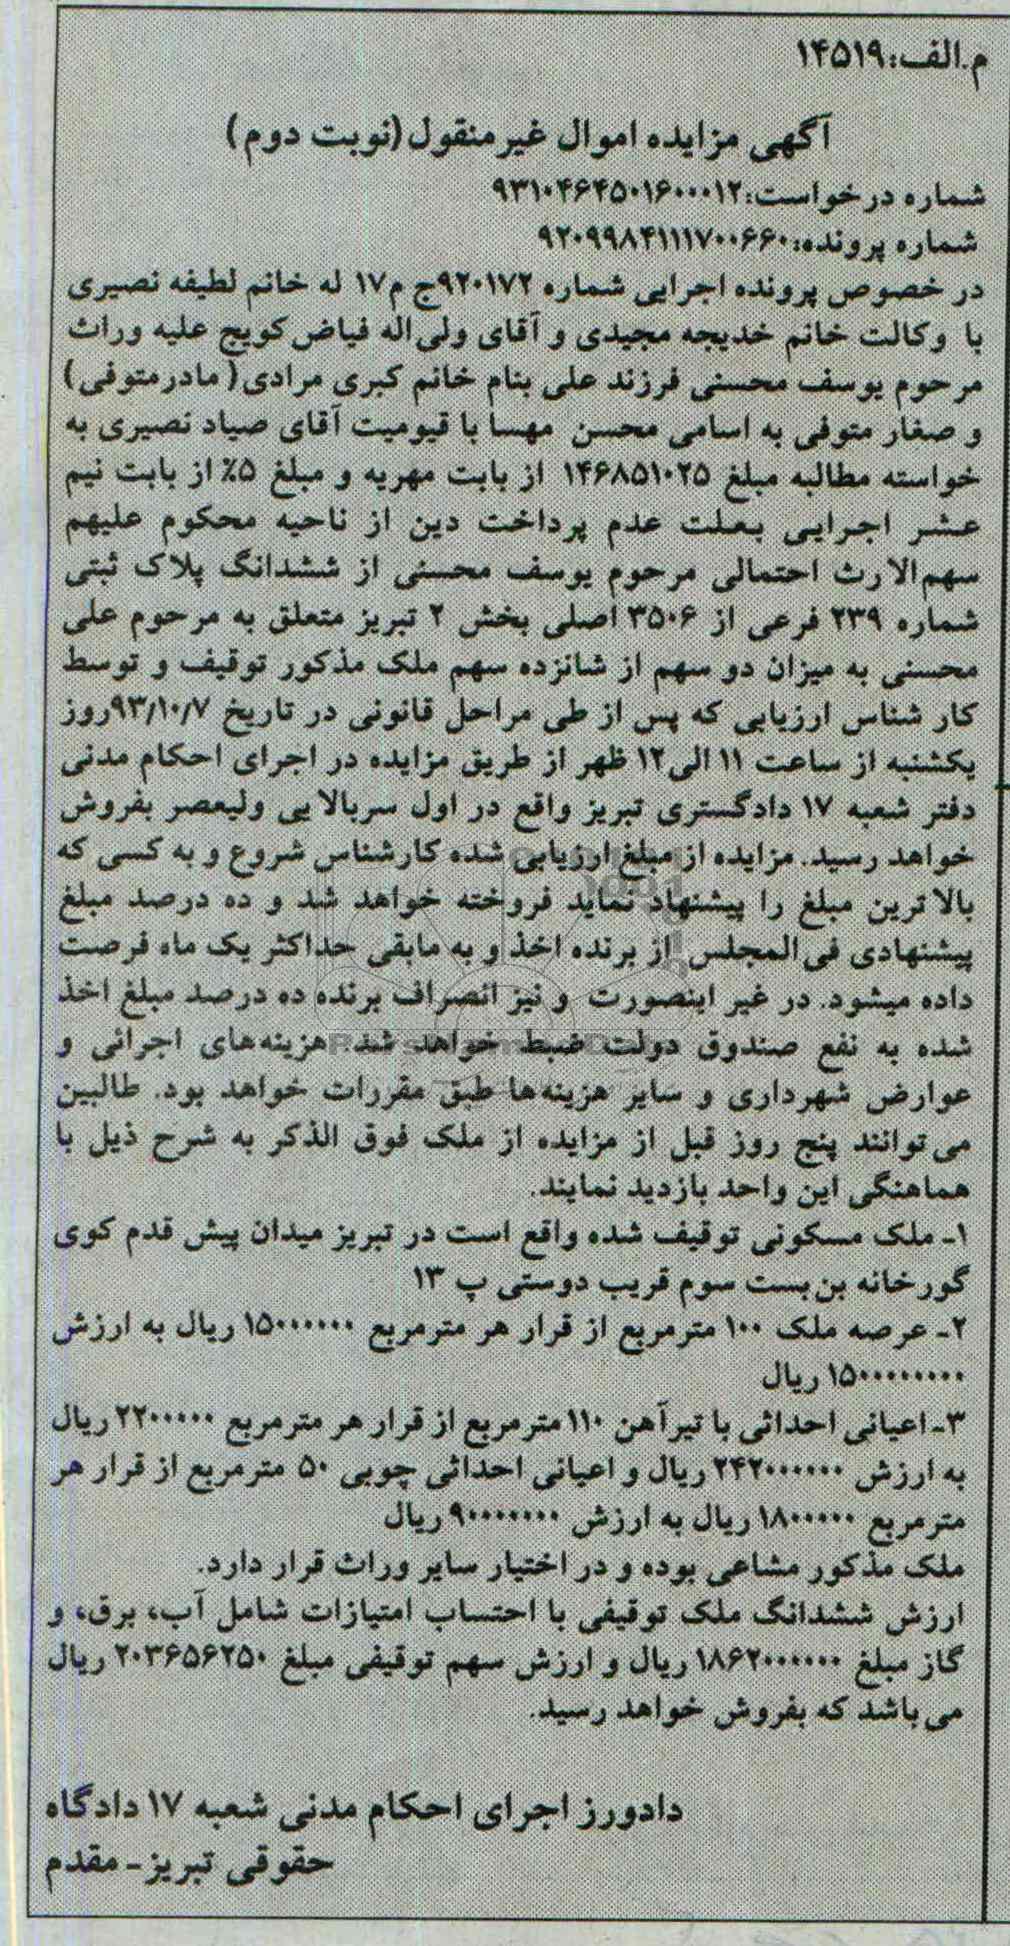 م.الف:۱۴۵۱۹
آگهی مزایده اموال غیرمنقول(نوبت دوم)
شماره درخواست:۹۳۱۰۴۶۴۵۰۱۶۰۰۰۱۲
شماره پرونده:۹۲۰۹۹۸۴۱۱۱۷۰۰۶۶۰
در خصوص پرونده اجرایی شماره ۹۲۰۱۷۲ج م۱۷ له خانم لطیفه نصیری
با وکالت خانم خدیجه مجیدی و آقای ولی‌اله فیاض کویج علیه وراث
مرحوم یوسف محسنی فرزند علی بنام خانم کبری مرادی(مادرمتوفی)
و صغار متوفی به اسامی محسن مهسا با قیومیت آقای صیاد نصیری به
خواسته مطالبه مبلغ ۱۴۶۸۵۱۰۲۵ از بابت مهریه و مبلغ ۵٪ از بابت نیم
عشر اجرایی بعلت عدم پرداخت دین از ناحیه محکوم علیهم
سهم‌الارث احتمالی مرحوم یوسف محسنی از ششدانگ پلاک ثبتی
شماره ۲۳۹ فرعی از ۳۵۰۶ اصلی بخش ۲ تبریز متعلق به مرحوم علی
محسنی به میزان دو سهم از شانزده سهم ملک مذکور توقیف و توسط
کار شناس ارزیابی که پس از طی مراحل قانونی در تاریخ ۹۳/۱۰/۷روز
یکشنبه از ساعت ۱۱ الی۱۲ ظهر از طریق مزایده در اجرای احکام مدنی
دفتر شعبه ۱۷ دادگستری تبریز واقع در اول سربالایی ولیعصر بفروش
خواهد رسید. مزایده از مبلغ ارزیابی شده کارشناس شروع و به کسی که
بالاترین مبلغ را پیشنهاد نماید فروخته خواهد شد و ده درصد مبلغ
پیشنهادی فی‌المجلس از برنده اخذ و به مابقی حداکثر یک ماه فرصت
داده میشود. در غیر اینصورت و نیز انصراف برنده ده درصد مبلغ اخذ
شده به نفع صندوق دولت ضبط خواهد شد. هزینه‌های اجرائی و
عوارض شهرداری و سایر هزینه‌ها طبق مقررات خواهد بود. طالبین
می‌توانند پنج روز قبل از مزایده از ملک فوق الذکر به شرح ذیل با
هماهنگی این واحد بازدید نمایند.
۱- ملک مسکونی توقیف شده واقع است در تبریز میدان پیش قدم کوی
گورخانه بن‌بست سوم قریب دوستی پ ۱۳
۲- عرصه ملک ۱۰۰ مترمربع از قرار هر مترمربع ۱۵۰۰۰۰۰۰ ریال به ارزش
۱۵۰۰۰۰۰۰۰۰ ریال
۳- اعیانی احداثی با تیرآهن ۱۱۰ مترمربع از قرار هر مترمربع ۲۲۰۰۰۰۰ ریال
به ارزش ۲۴۲۰۰۰۰۰۰ ریال و اعیانی احداثی چوبی ۵۰ مترمربع از قرار هر
مترمربع ۱۸۰۰۰۰۰ ریال به ارزش ۹۰۰۰۰۰۰۰ ریال
ملک مذکور مشاعی بوده و در اختیار سایر وراث قرار دارد.
ارزش ششدانگ ملک توقیفی با احتساب امتیازات شامل آب، برق، و
گاز مبلغ ۱۸۶۲۰۰۰۰۰۰ ریال و ارزش سهم توقیفی مبلغ ۲۰۳۶۵۶۲۵۰ ریال
می‌باشد که بفروش خواهد رسید.
دادورز اجرای احکام مدنی شعبه ۱۷ دادگاه
حقوقی تبریز- مقدم